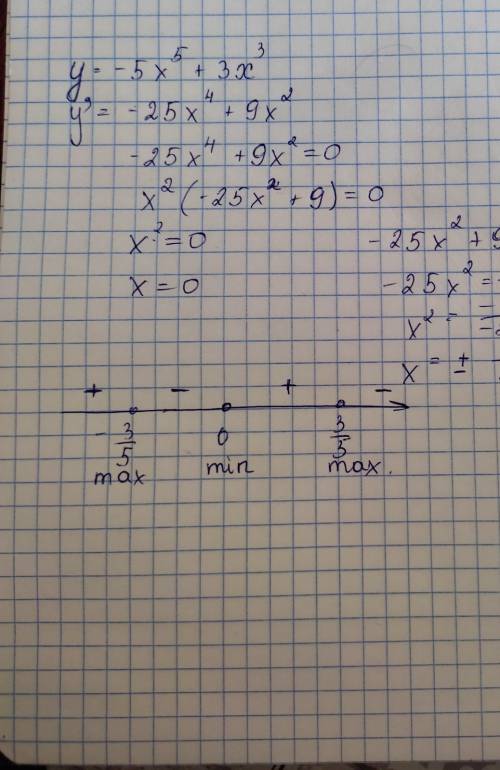 y = -5x⁵ + 3x³
y' = -25x⁴ + 9x²
-25x⁴ + 9x² = 0
x² (-25x² + 9) = 0
x² = 0
x = 0
-25x² + 9
-25x² = -
x² =
x = ±
+ - + -
-3/5 0 3/3
max min max.